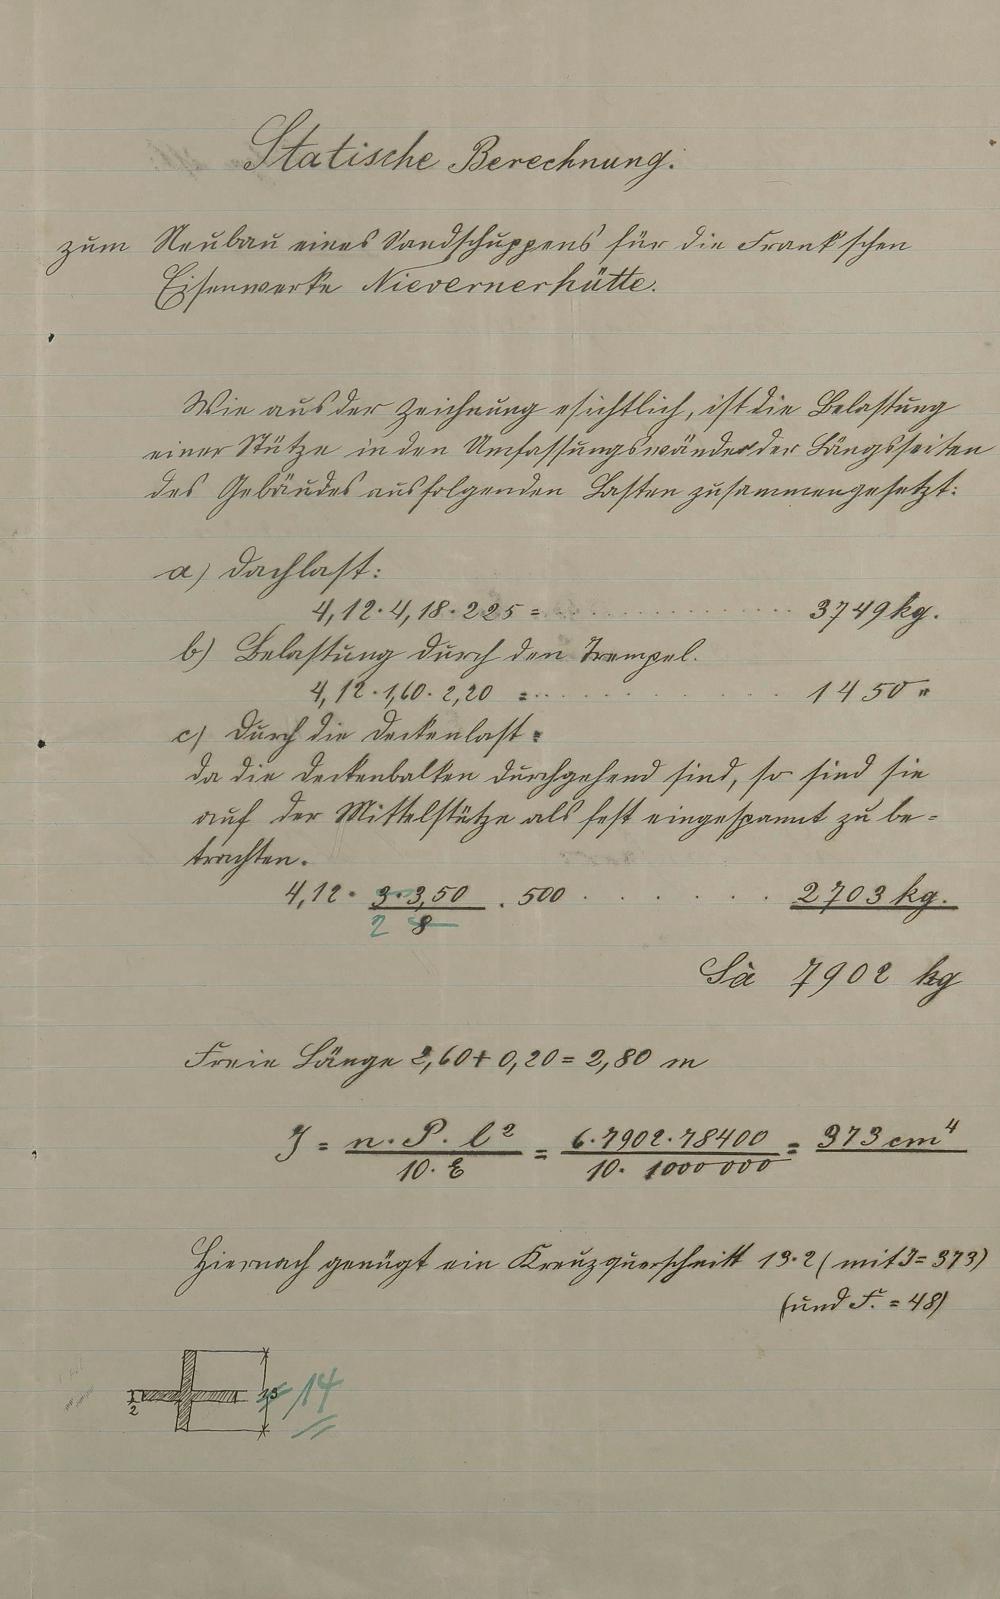 Statische Berechnung.
zum Neubau eines Sandschuppens für die Frank'schen
Eisenwerke Nievernerhütte.
Wie aus der Zeichnung esichtlich, ist die Belastung
einer Stütze in den Umfassungswänden der Längsseiten
des Gebäudes aus folgenden Lasten zusammengesetzt:
a) Dachlast:
4,12 · 4,18 · 225 = 3749 kg.
b) Belastung durch den Trempel.
4,12 · 1,60 · 2,20 = 1450 "
c) Durch die Deckenlast:
Da die Deckenbalken durchgehend sind, so sind sie
auf der Mittelstütze als fest eingespannt zu be-
trachten.
4,12 · 3 · 3,50 . 500 2703 kg.
2 8
Sa 7902 kg
Freie Länge 2,60 + 0,20 = 2,80 m
J = n · P. l² = 6 · 7902 · 78400 = 373 cm⁴
10 · E 10. 1000 000
Hiernach genügt ein Kreuzquerschnitt 13 · 2 ( mit J = 373)
(und F. = 48)
2 14